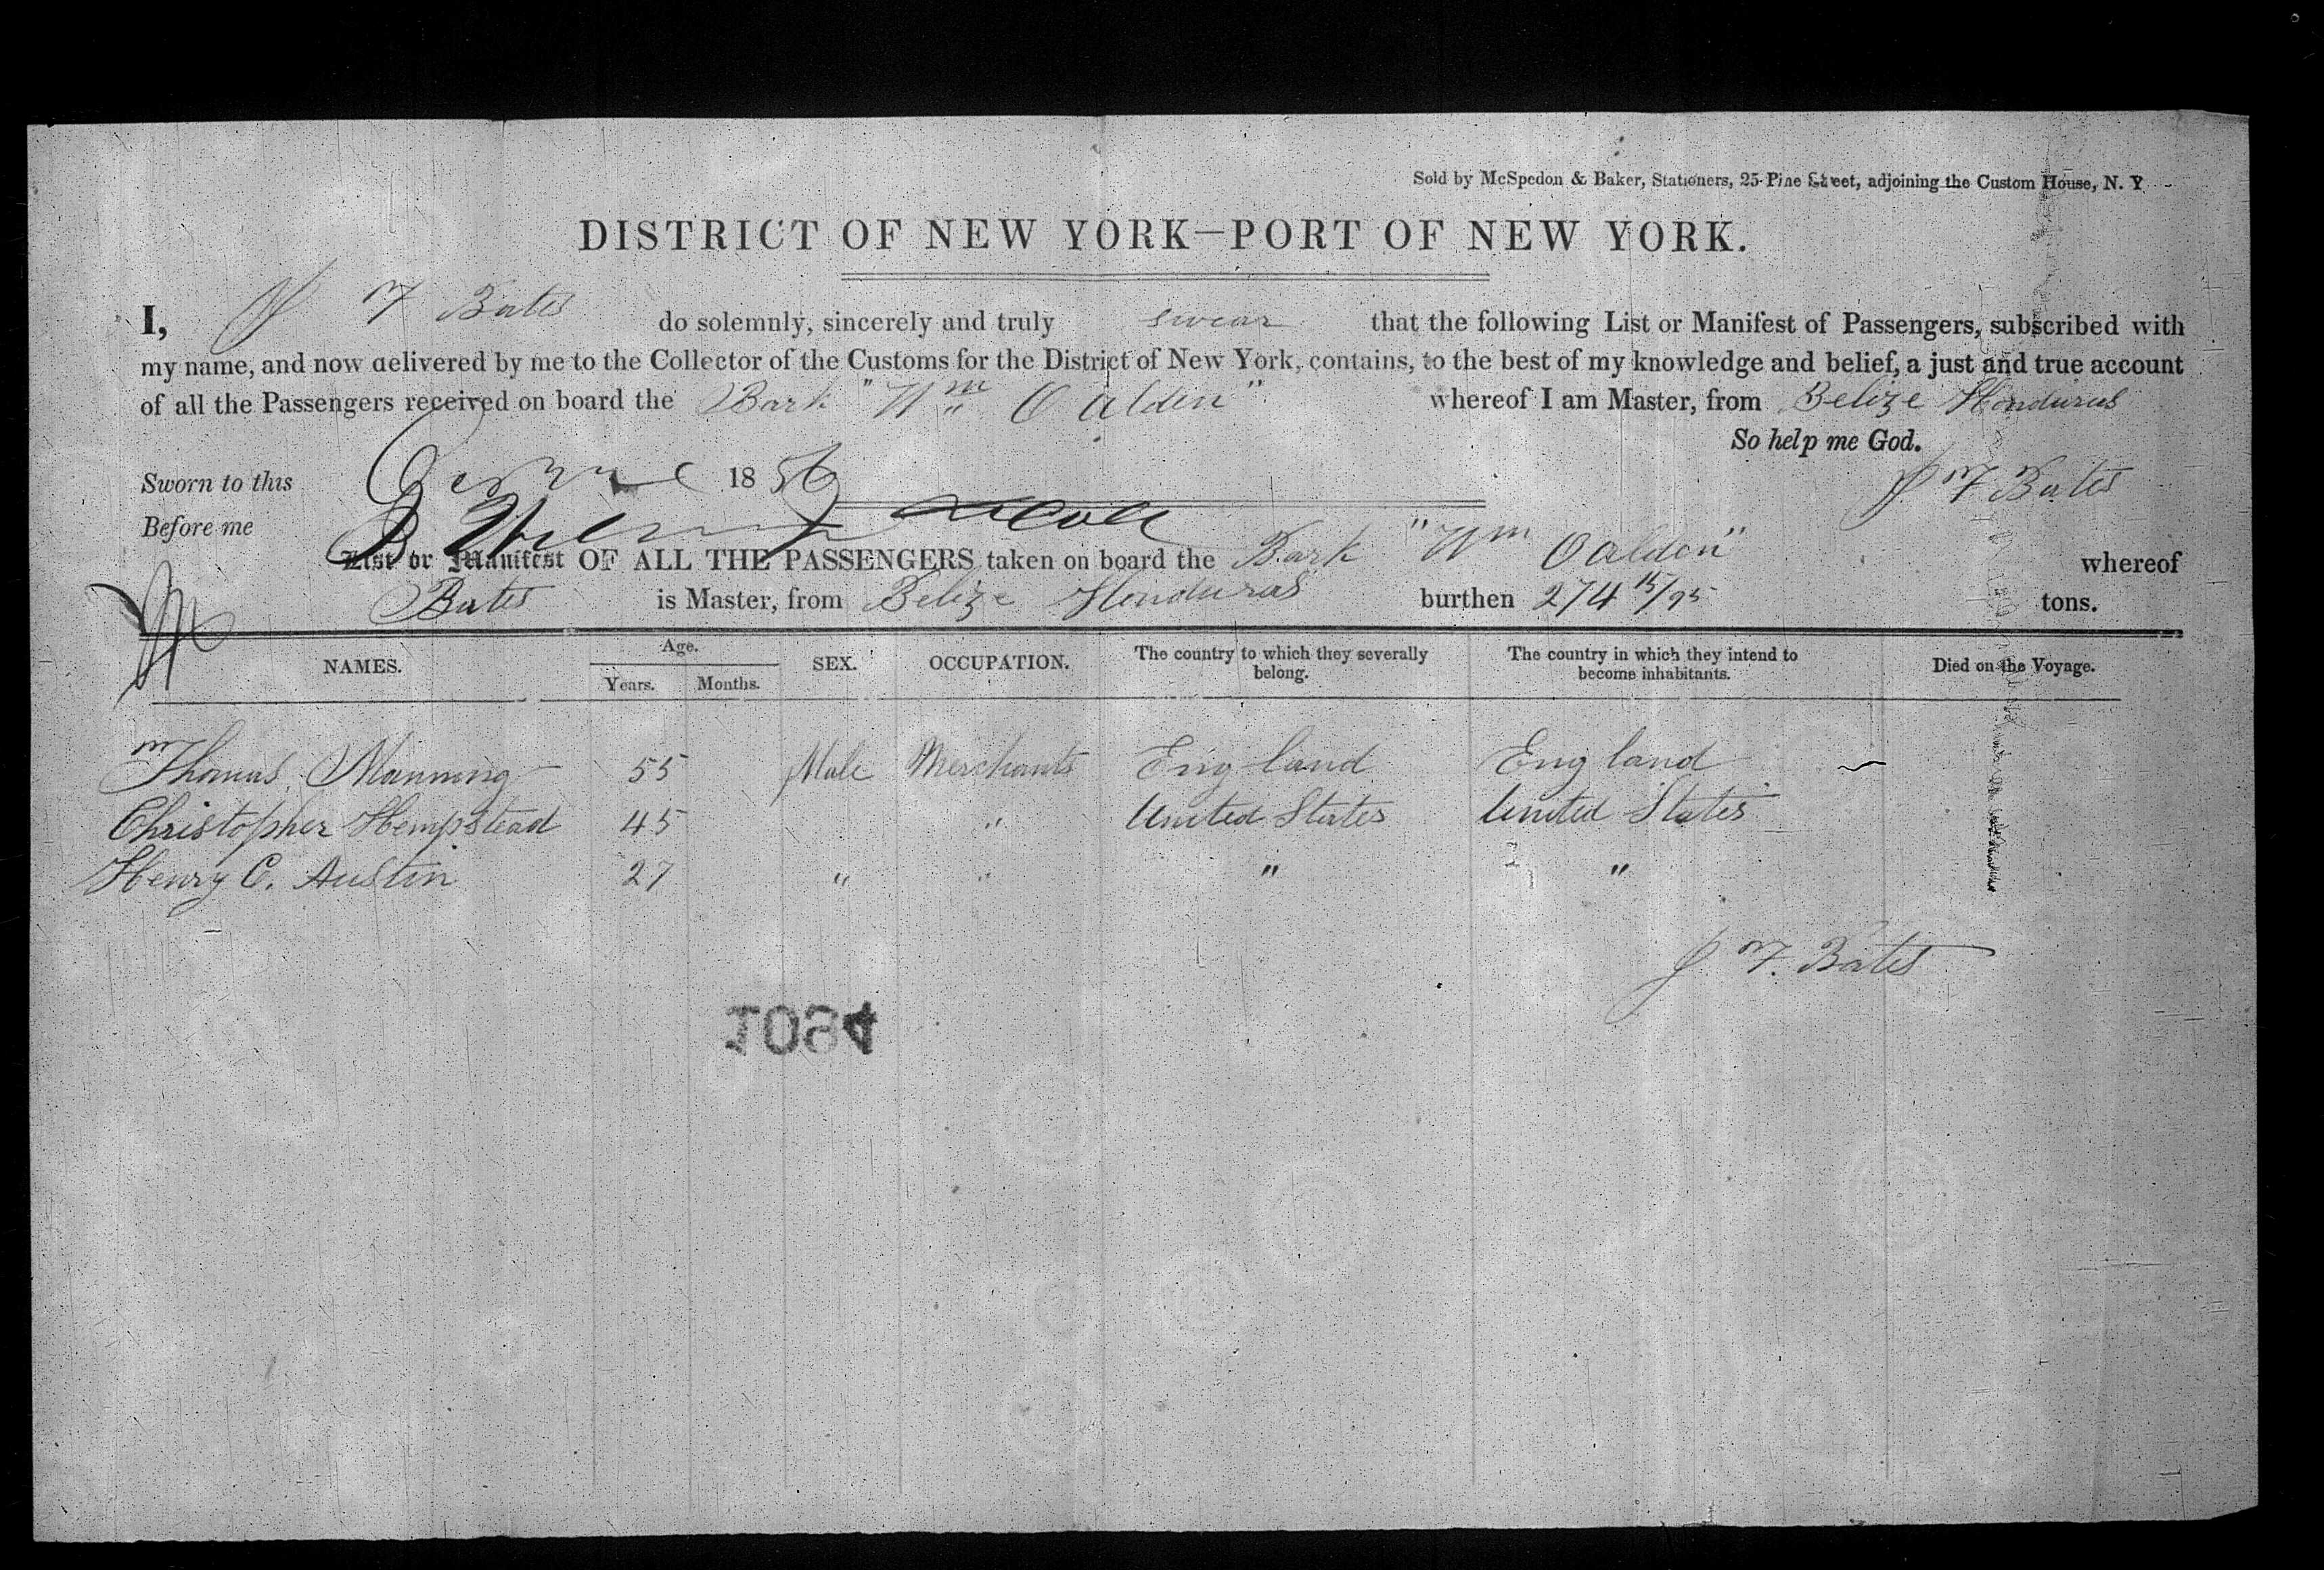 Sold by McSpedon & Baker, Stationers, 25 Pine Street, adjoining the Custom House, N. Y.
DISTRICT OF NEW YORK—PORT OF NEW YORK.
I, J F Bates do solemnly, sincerely and truly swear that the following List or Manifest of Passengers, subscribed with
my name, and now delivered by me to the Collector of the Customs for the District of New York, contains, to the best of my knowledge and belief, a just and true account
of all the Passengers received on board the Bark "Wm O Alden" whereof I am Master, from Belize Honduras
So help me God.
Sworn to this 1856 J F Bates
Before me
List or Manifest OF ALL THE PASSENGERS taken on board the Bark "Wm O Alden" whereof
Bates is Master, from Belize Honduras burthen 274 15/95 tons.
NAMES. Age. Years. Months. SEX. OCCUPATION. The country to which they severally belong. The country in which they intend to become inhabitants. Died on the Voyage.
Thomas Manning 55 Male Merchants England England
Christopher Hempstead 45 " United States United States
Henry C. Austin 27 " " " "
J F. Bates